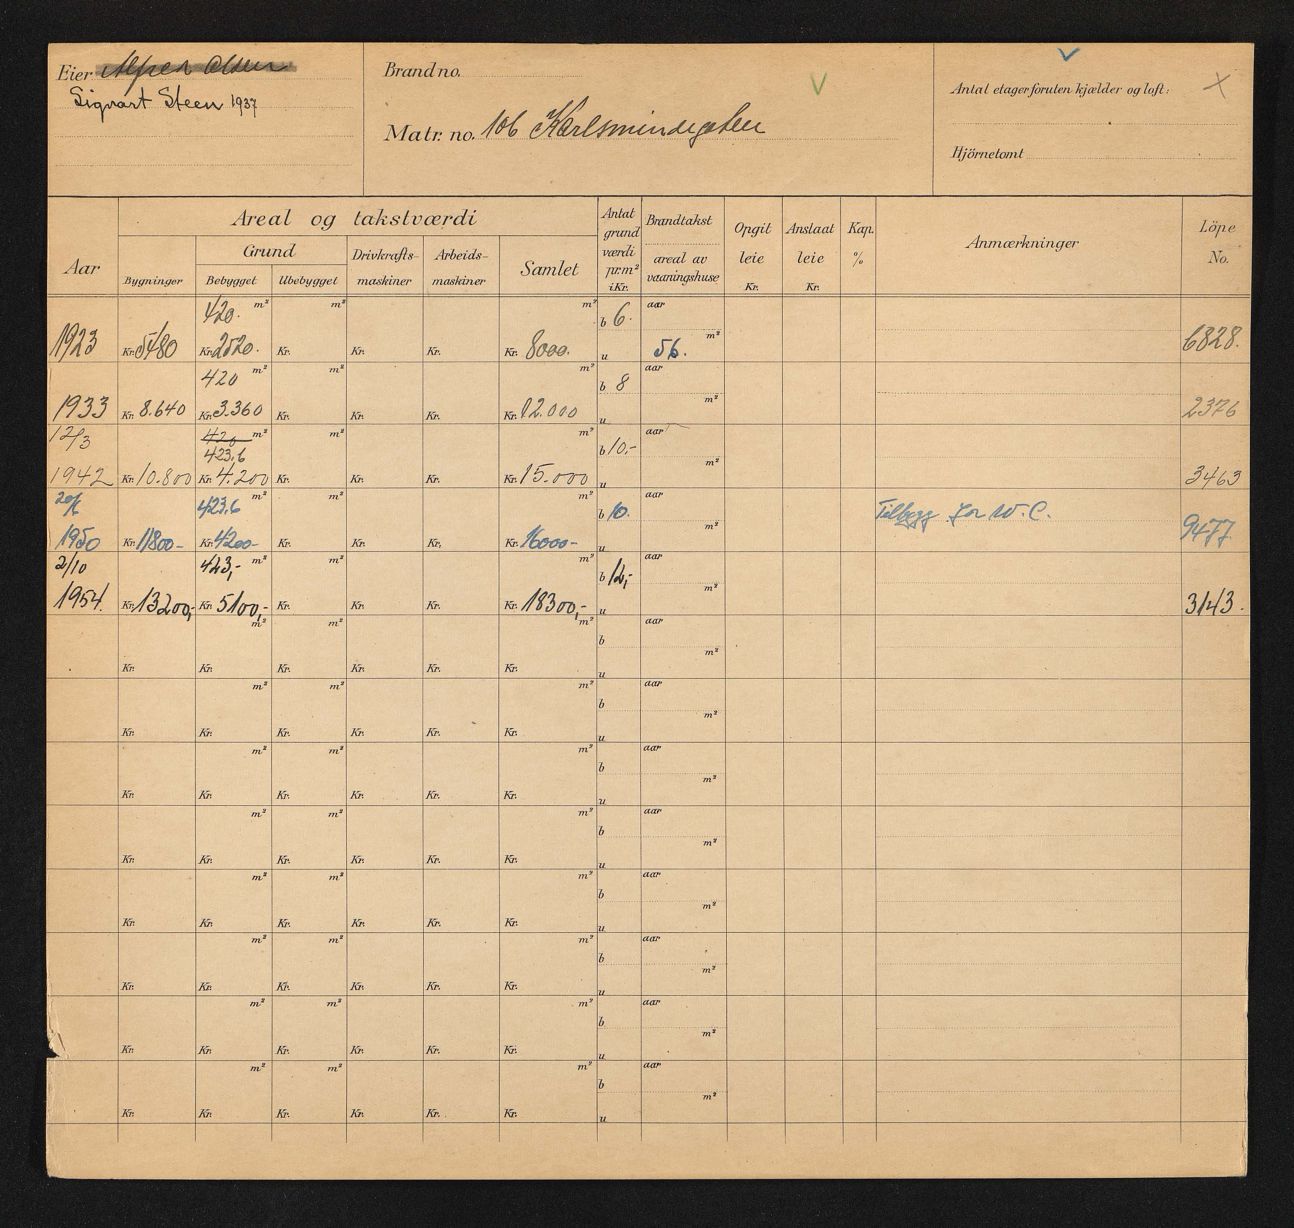 Eier Alfred Olsen
Sigvart Steen 1937
Brand no.
Matr. no. 106 Karlsmindegaten
Antal etager foruten kjælder og loft:
Hjörnetomt
Aar
Areal og takstværdi
Grund
Bygninger
Bebygget
Ubebygget
Drivkrafts-
maskiner
Arbeids-
maskiner
Samlet
Antat
grund
værdi
pr. m²
i Kr.
Brandtakst
areal av
vaaningshuse
Opgit
leie
Kr.
Anslaat
leie
Kr.
Kap.
%
Anmærkninger
Löpe
No.
420. m² m² m² b 6. aar
1923 Kr. 5480 Kr. 2520. Kr. Kr. Kr. Kr. 8000. u 56. m² 6828.
420 m² m² m² b 8 aar
1933 Kr. 8.640 Kr. 3.360 Kr. Kr. Kr. Kr. 12.000 u m² 2376
12/3 420 m² m² m² b 10,- aar
423.6
1942 Kr. 10.800 Kr. 4.200 Kr. Kr. Kr. Kr. 15.000 u m² 3463
20/6 423,6 m² m² m² b 10. aar Tilbygg for W.C.
1950 Kr. 11800- Kr. 4200- Kr. Kr. Kr. Kr. 16000- u m² 9477
2/10 423,- m² m² m² b 12,- aar
1954. Kr. 13200,- Kr. 5100,- Kr. Kr. Kr. Kr. 18300,- u m² 3143.
m² m² m² b aar
Kr. Kr. Kr. Kr. Kr. Kr. u m²
m² m² m² b aar
Kr. Kr. Kr. Kr. Kr. Kr. u m²
m² m² m² b aar
Kr. Kr. Kr. Kr. Kr. Kr. u m²
m² m² m² b aar
Kr. Kr. Kr. Kr. Kr. Kr. u m²
m² m² m² b aar
Kr. Kr. Kr. Kr. Kr. Kr. u m²
m² m² m² b aar
Kr. Kr. Kr. Kr. Kr. Kr. u m²
m² m² m² b aar
Kr. Kr. Kr. Kr. Kr. Kr. u m²
m² m² m² b aar
Kr. Kr. Kr. Kr. Kr. Kr. u m²